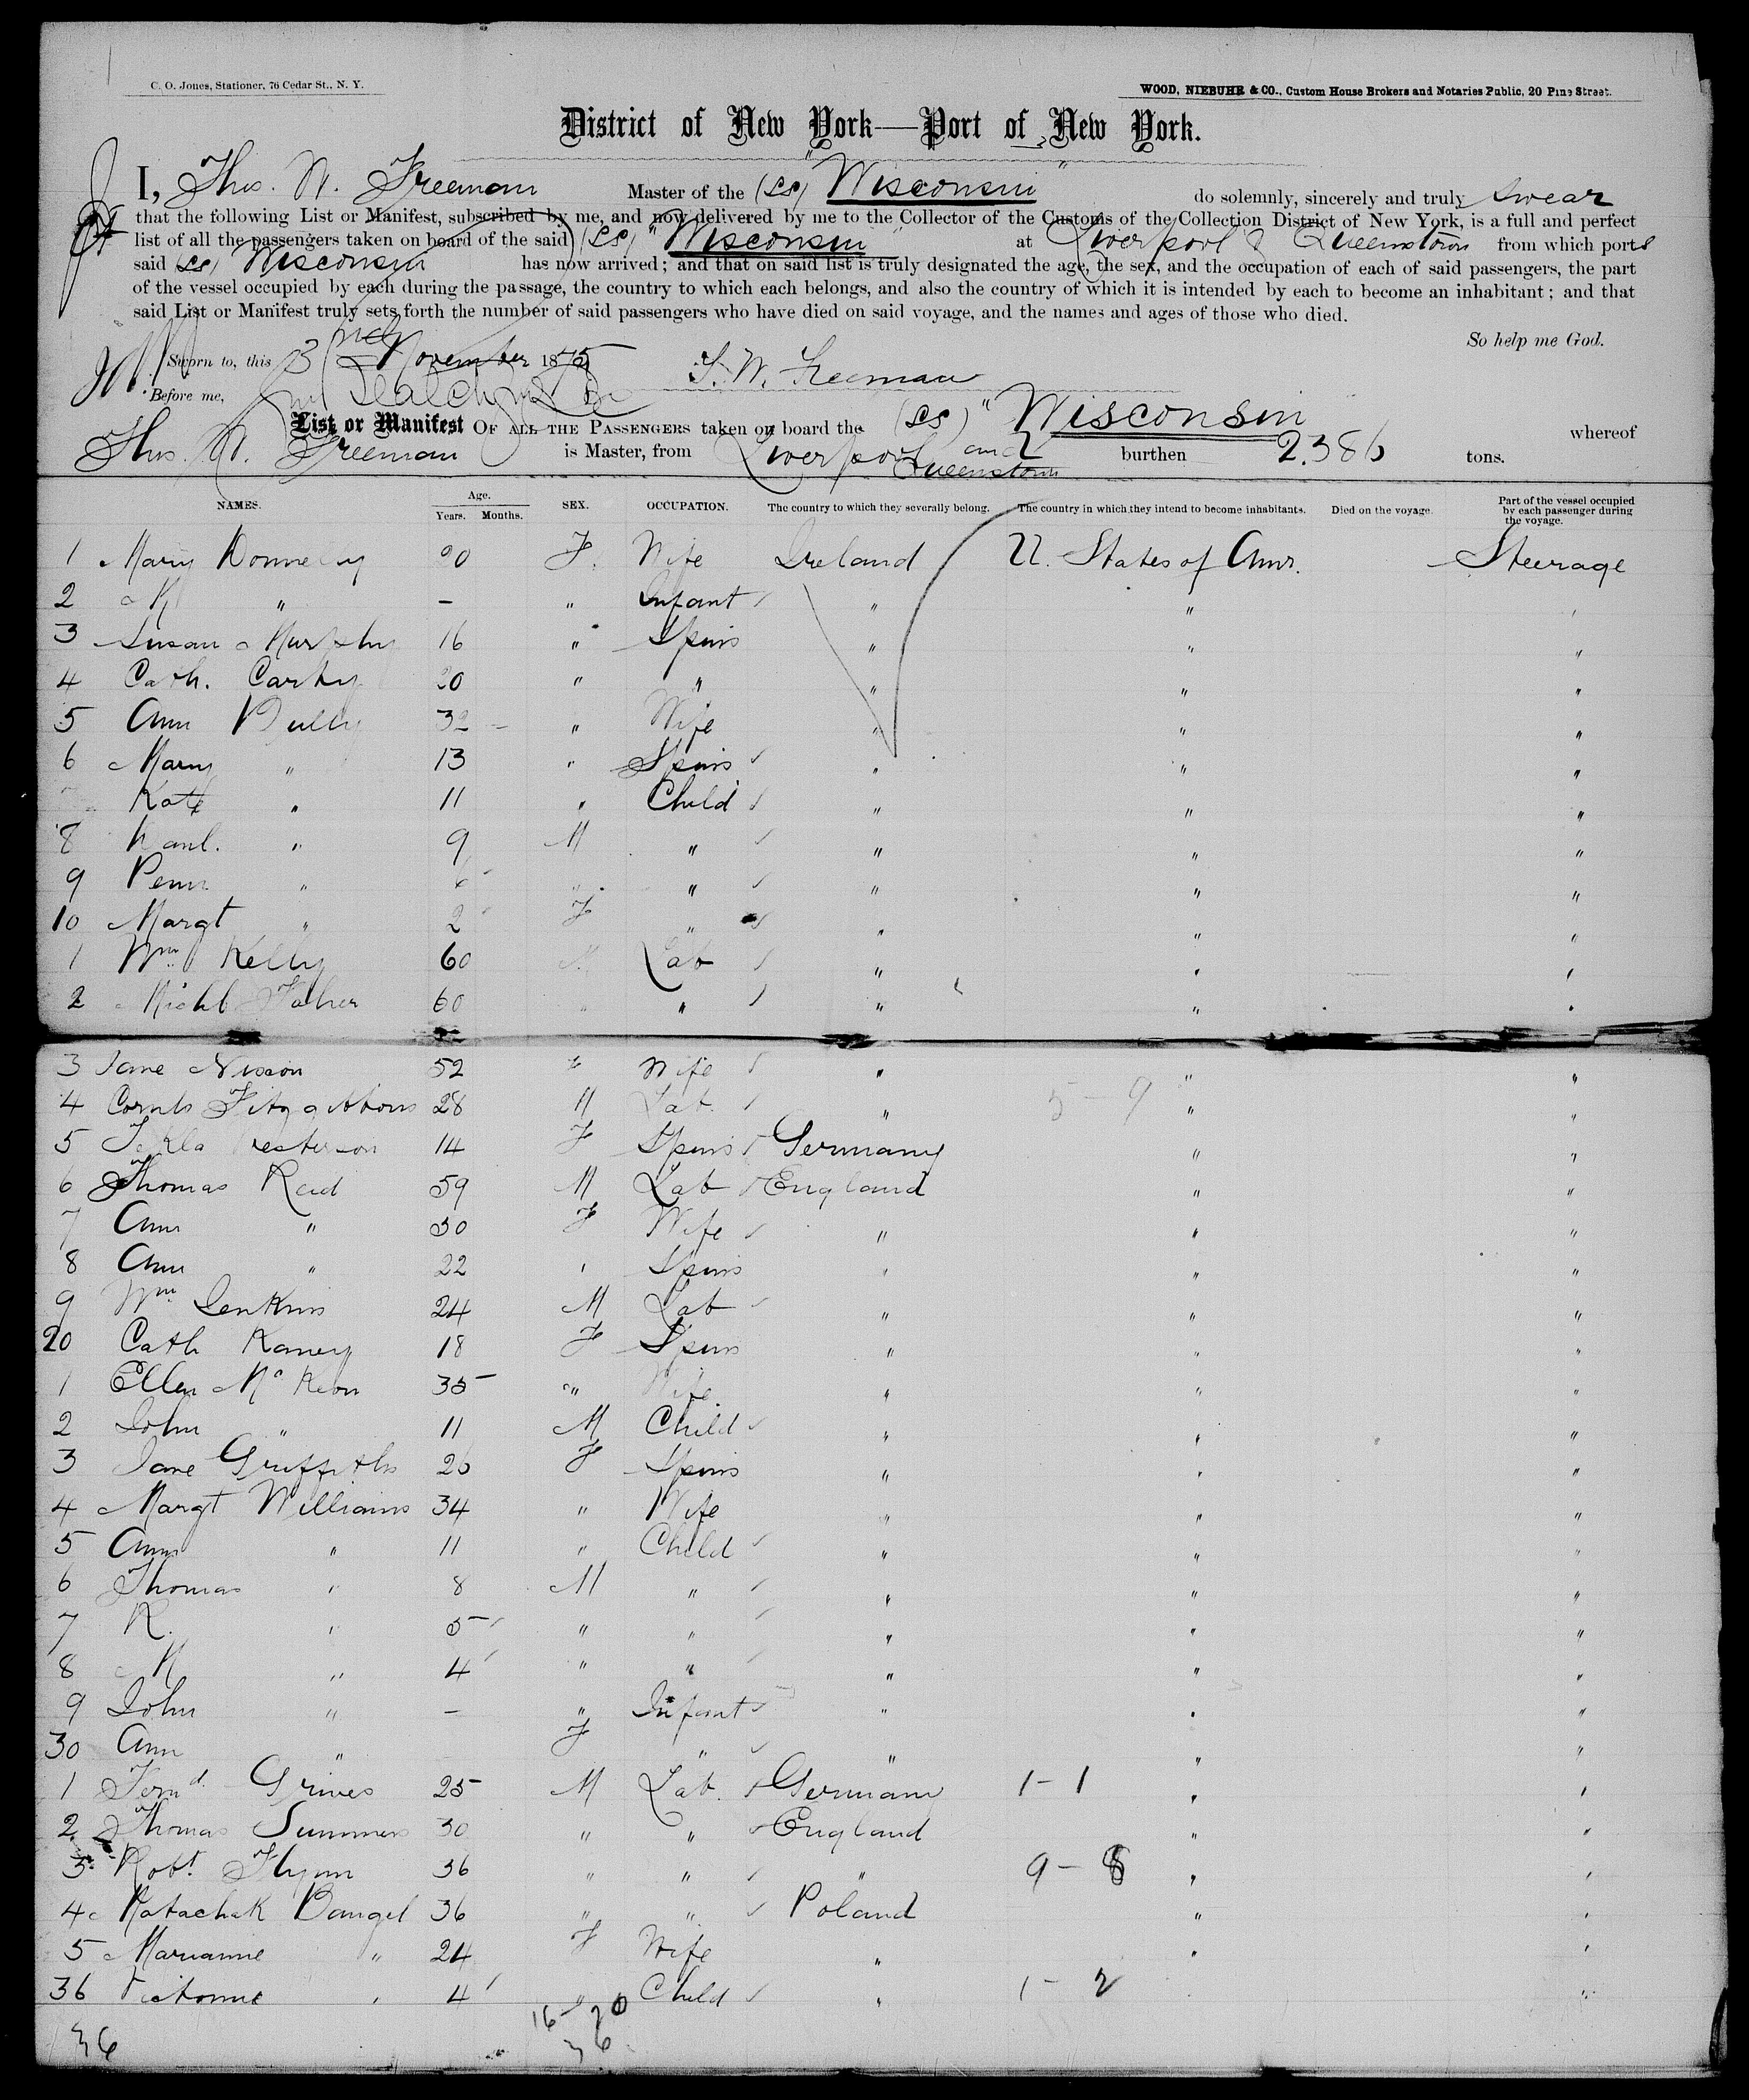 C. O. Jones, Stationer, 76 Cedar St., N. Y.
WOOD, NIEBUHR & CO., Custom House Brokers and Notaries Public, 20 Pine Street.
District of New York—Port of New York.
I, Thos. W. Freeman Master of the (SS) "Wisconsin" do solemnly, sincerely and truly swear
that the following List or Manifest, subscribed by me, and now delivered by me to the Collector of the Customs of the Collection District of New York, is a full and perfect
list of all the passengers taken on board of the said (SS) "Wisconsin" at Liverpool & Queenstown from which ports
said (SS) Wisconsin has now arrived; and that on said list is truly designated the age, the sex, and the occupation of each of said passengers, the part
of the vessel occupied by each during the passage, the country to which each belongs, and also the country of which it is intended by each to become an inhabitant; and that
said List or Manifest truly sets forth the number of said passengers who have died on said voyage, and the names and ages of those who died.
So help me God.
Sworn to, this 3rd November 1875 T. W. Freeman
Before me,
List or Manifest OF ALL THE PASSENGERS taken on board the (SS) "Wisconsin whereof
Thos. W. Freeman is Master, from Liverpool and Queenstown burthen 2.386 tons.
NAMES. Age. Years. Months. SEX. OCCUPATION. The country to which they severally belong. The country in which they intend to become inhabitants. Died on the voyage. Part of the vessel occupied by each passenger during the voyage.
1 Mary Donnelly 20 F. Wife Ireland U. States of Amr. Steerage
2 M " — " Infant " " "
3 Susan Murphy 16 " Spins " " "
4 Cath. Carty 20 " " " " "
5 Ann Dully 32 " Wife " " "
6 Mary " 13 " Spins " " "
Kate " 11 " Child " " "
8 " 9 M " " " "
9 " " " " " "
10 Margt " 2 F " " " "
1 Wm Kelly 60 M Lab " " "
2 Michl Faher 60 " " " " "
3 Jane Nixon 52 F Wife " " "
4 Cornls Fitzgibbons 28 M Lab. " 5-9 " "
5 14 F Spins Germany " "
6 Thomas Reid 59 M Lab England " "
7 Ann " 30 F Wife " " "
8 Ann " 22 " Spins " " "
9 Wm Jenkins 24 M Lab " " "
20 Cath Kaney 18 F Spins " " "
1 Ellen McKeon 35 " Wife " " "
2 John " 11 M Child " " "
3 Jane Griffiths 26 F Spins " " "
4 Margt Williams 34 " Wife " " "
5 Ann " 11 " Child " " "
6 Thomas " 8 M " " " "
7 R. " 5 " " " " "
8 M " 4 " " " " "
9 John " — " Infant " " "
30 Ann " F " " " "
1 Fernd. Grimes 25 M Lab. Germany 1-1 " "
2 Thomas Summers 30 " " England " "
3 Robt. Flynn 36 " " " 9-8 " "
4 Matachak Bangel 36 " " Poland " "
5 Marianne " 24 F Wife " " "
36 " 4 " Child " 1-2 "
16-20
36 36